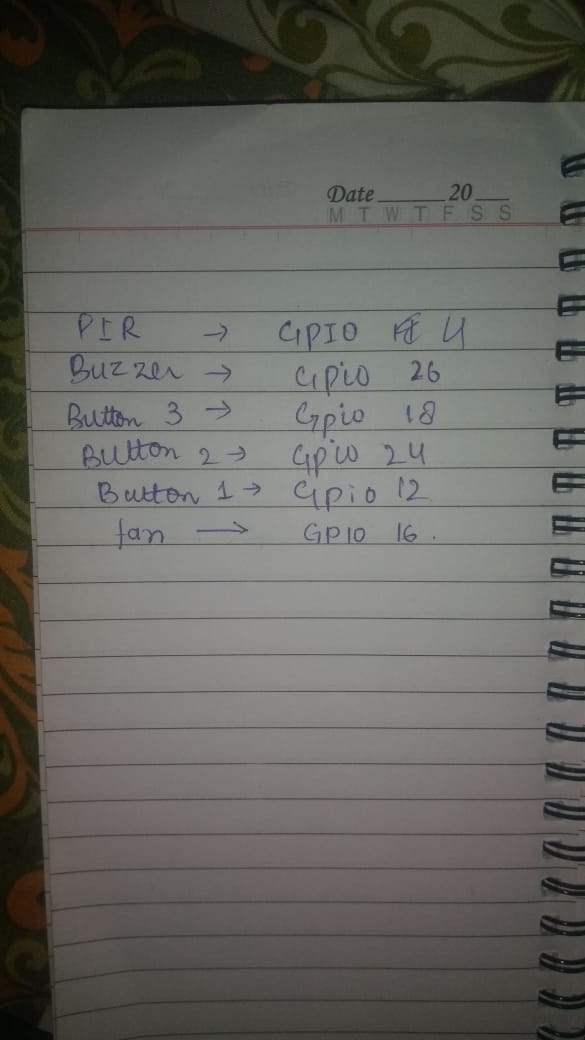 Date 20
M T W T F S S
PIR → GPIO 4
Buzzer → Gpio 26
Button 3 → Gpio 18
Button 2 → Gpio 24
Button 1 → Gpio 12
fan → GPIO 16.